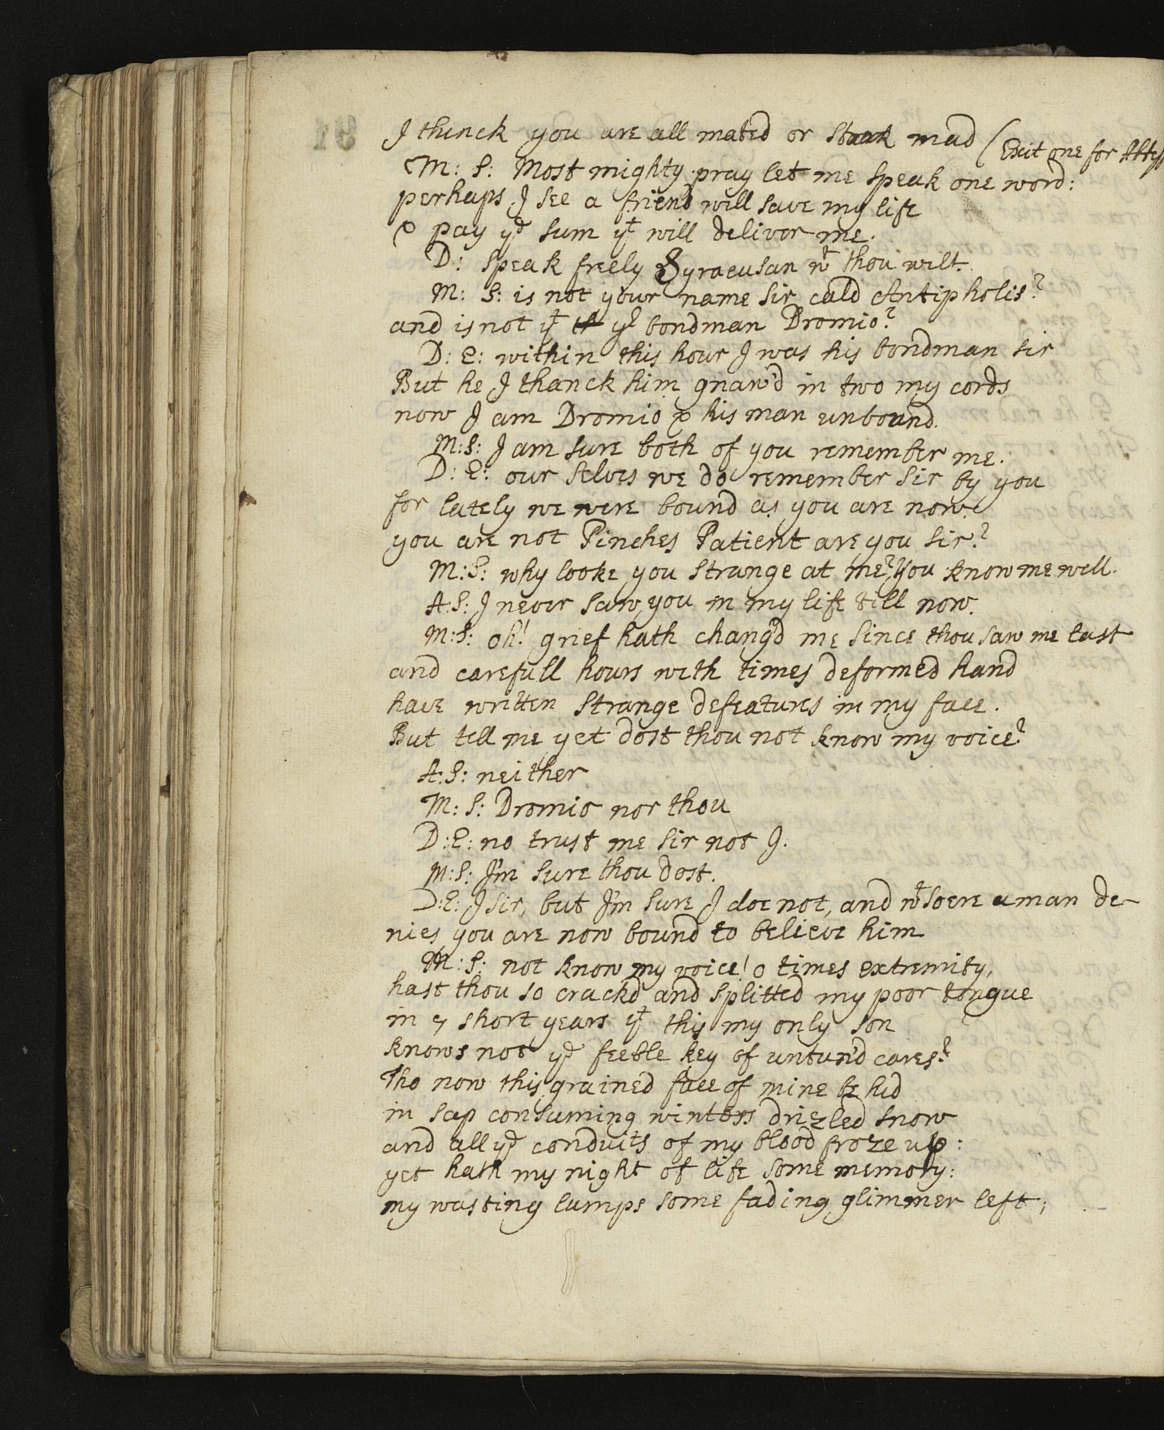 I thinck you are all mated or stark mad (Exit one for Abbess
M: S: Most mighty pray let me speak one word:
perhaps I see a friend will save my life
& pay yᵉ sum yᵗ will deliver me.
D: speak freely Syracusan wᵗ thou wilt.
M: S: is not your name sir cald Antipholis?
and is not yᵗ yᵉ bondman Dromio?
D: E: within this hour I was his bondman sir
But he I thanck him gnaw'd in two my cords
now I am Dromio & his man unbound.
M:S: I am sure both of you remember me.
D: E: our selves we do remember sir by you
for lately we were bound as you are now.
you are not Pinches Patient are you sir?
M:S: why looke you strange at me? You know me well.
A:S: I never saw you in my life till now.
M:S: oh! grief hath chang'd me since thou saw me last
and carefull hours with times deformed hand
have written strange defeatures in my face.
But tell me yet dost thou not know my voice?
A:S: neither
M: S: Dromio nor thou
D:E: no trust me sir not I.
M:S: I'm sure thou dost.
D:E: I sir, but I'm sure I doe not, and wᵗsoere a man de-
nies you are now bound to believe him
M:S: not know my voice! o times extremity,
hast thou so crackd and splitted my poor tongue
in 7 short years yᵗ this my only son
knows not yᵉ feeble key of untun'd cares?
Tho now this grained face of mine be hid
in sap consuming winters drizled snow
and all yᵉ conduits of my blood froze up:
yet hath my night of life some memory:
my wasting lamps some fading glimmer left;